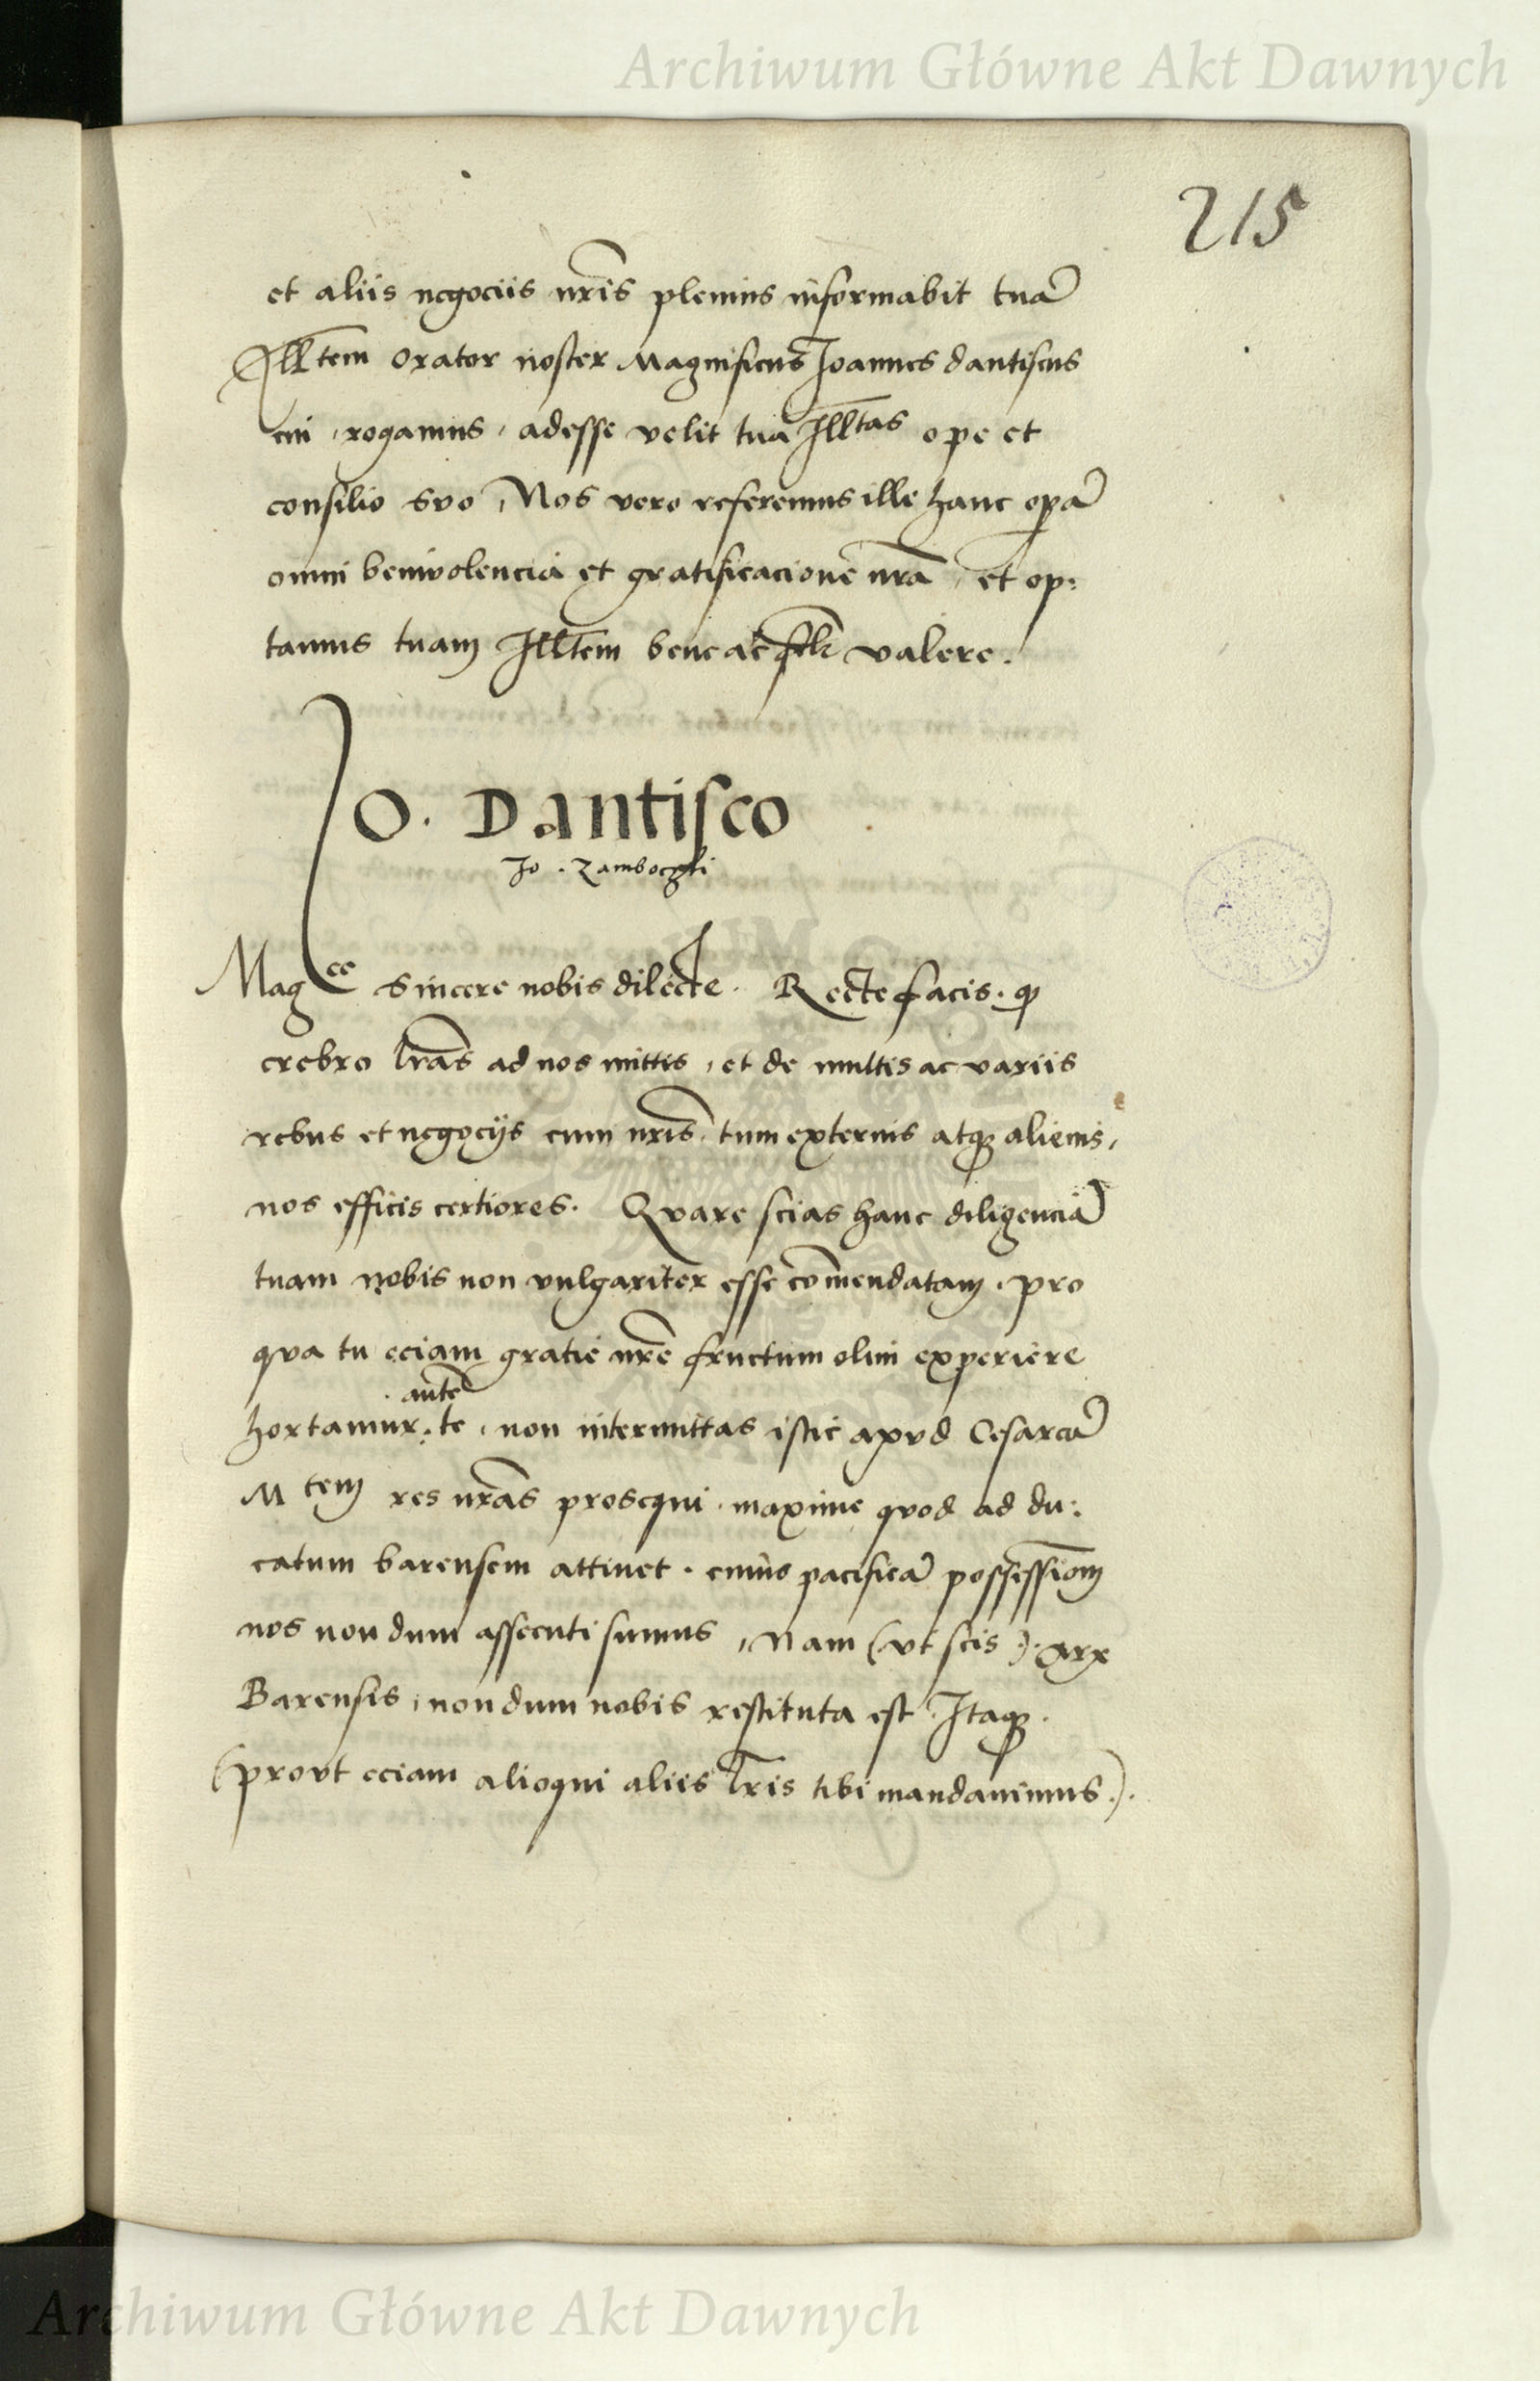 Archiwum Główne Akt Dawnych
215
et aliis negociis nr̃is plenius informabit tuã
Ill̃tem orator noster Magnificus Joannes dantiscus
cui, rogamus, adesse velit tua Ill̃tas ope et
consilio suo, Nos vero referemus ille hanc operã
omni benivolencia et gratificacione nr̃a, et op:
tamus tuam Ill̃tem bene ac fel̃r valere.
Jo. Dantisco
Jo. Zamboczki
Mag ce sincere nobis dilecte. Recte facis. q̃
crebro l̃ras ad nos mittis, et de multis ac variis
rebus et negocijs cum nr̃is, tum externis atq3 alienis,
nos efficis certiores. Quare scias hanc diligenciã
tuam nobis non vulgariter esse com̃endatam. pro
qua tu eciam gratie nr̃e fructum olim experiere
autẽ
hortamur. te, non intermittas istic apud Cesareã
M tem res nr̃as prosequi. maxime quod ad du:
catum barensem attinet. cuius pacificã possessiõm
nos nondum assecuti sumus, Nam (ut scis). arx
Barensis, nondum nobis restituta est. Itaq3.
(prout eciam alioqui aliis l̃ris tibi mandavimus.).
Archiwum Główne Akt Dawnych